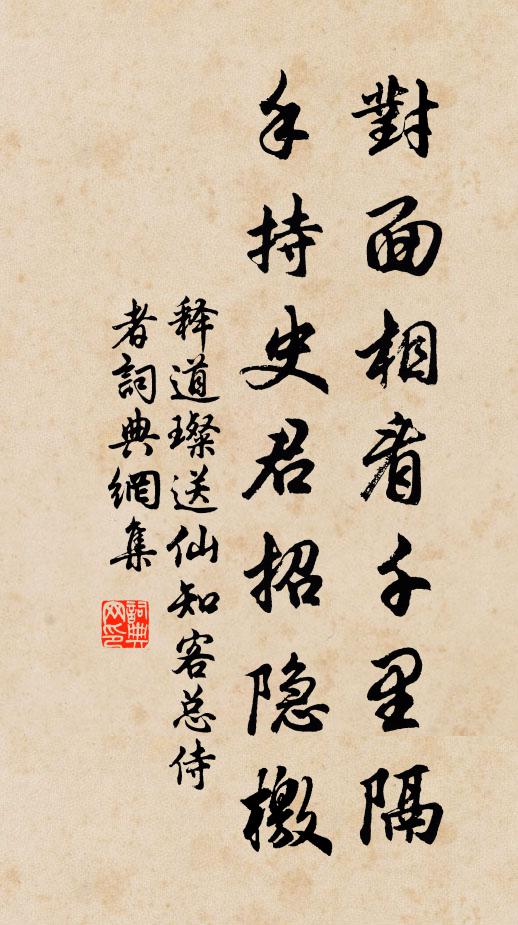 對面相看千里隔
手持史君招隐檄
释道璨送仙知客总侍
者詞典網集
詞典网印